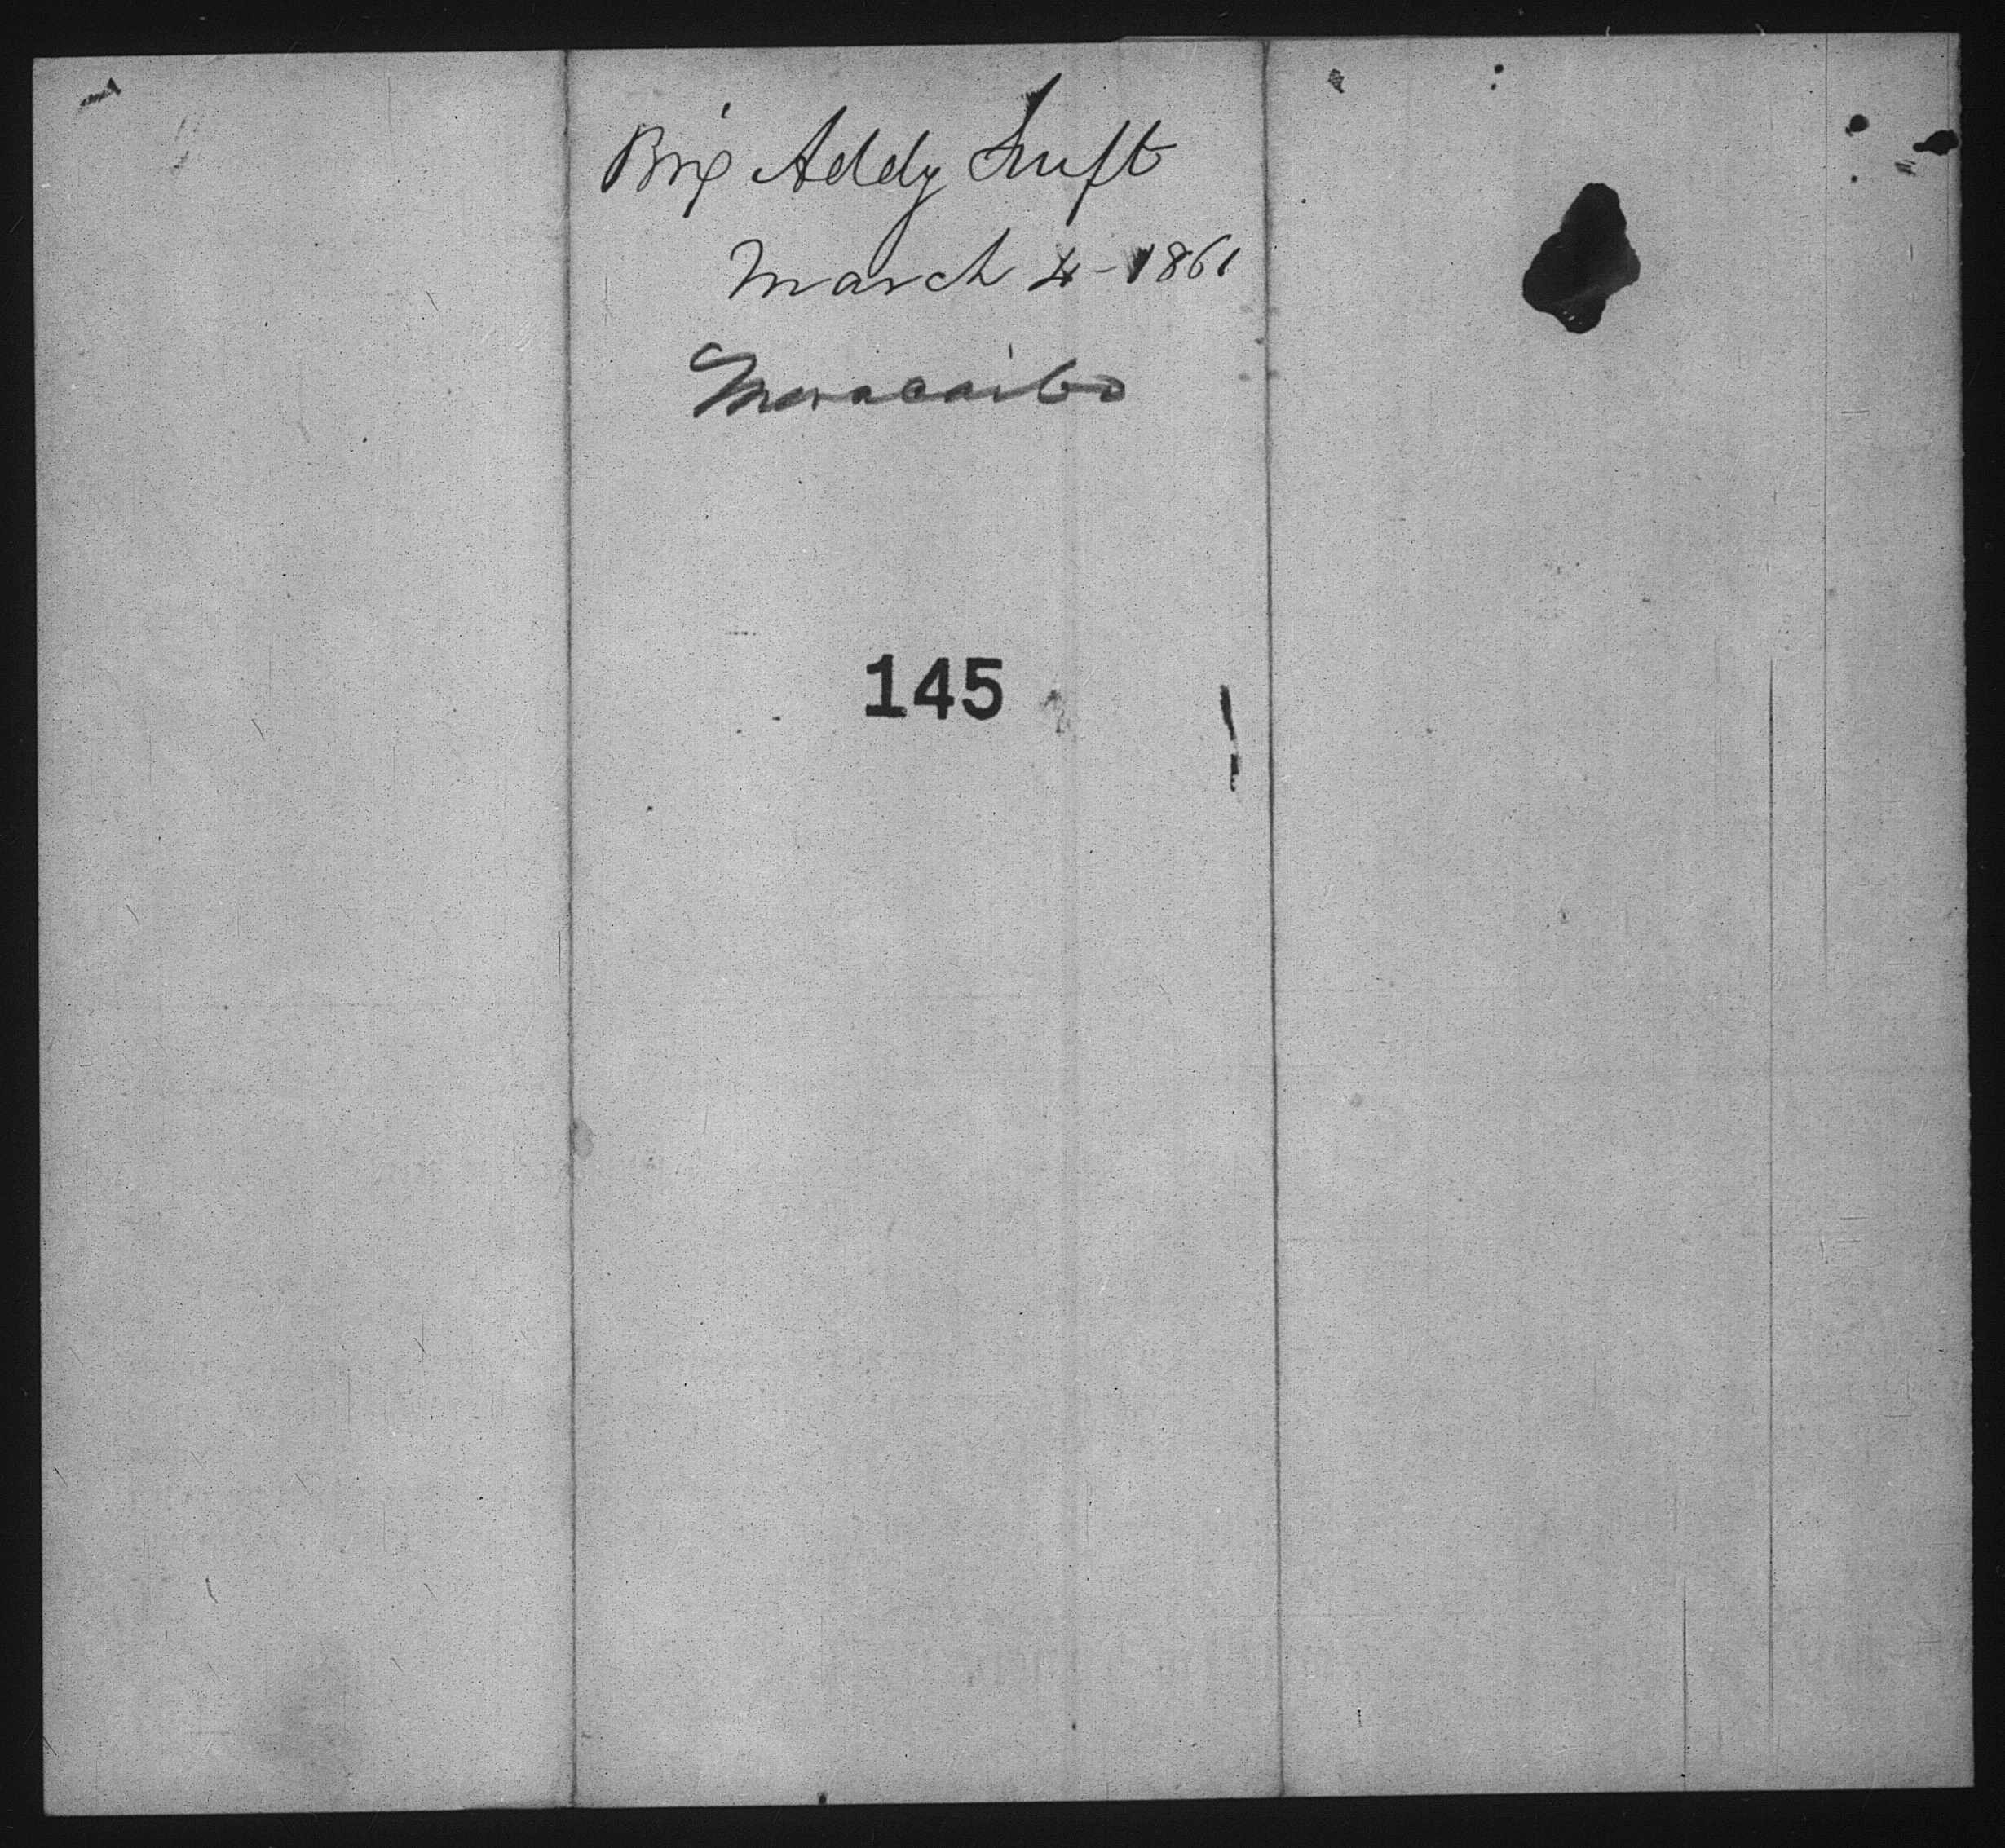 Brig Addy Swift
March 4 - 1861
Maracaibo
145